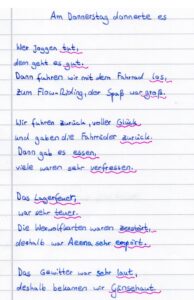 Am Donnerstag donnerte es
Wer Joggen tut,
dem geht es gut.
Dann fuhren wir mit dem Fahrrad los,
zum Flow-Riding, der Spaß war groß.
Wir fuhren zurück, voller Glück
und gaben die Fahrräder zurück.
Dann gab es essen,
viele waren sehr verfressen.
Das Lagerfeuer,
war sehr teuer.
Die Werwolfkarten waren zerstört,
deshalb war Aeena sehr empört.
Das Gewitter war sehr laut,
deshalb bekamen wir Gänsehaut.